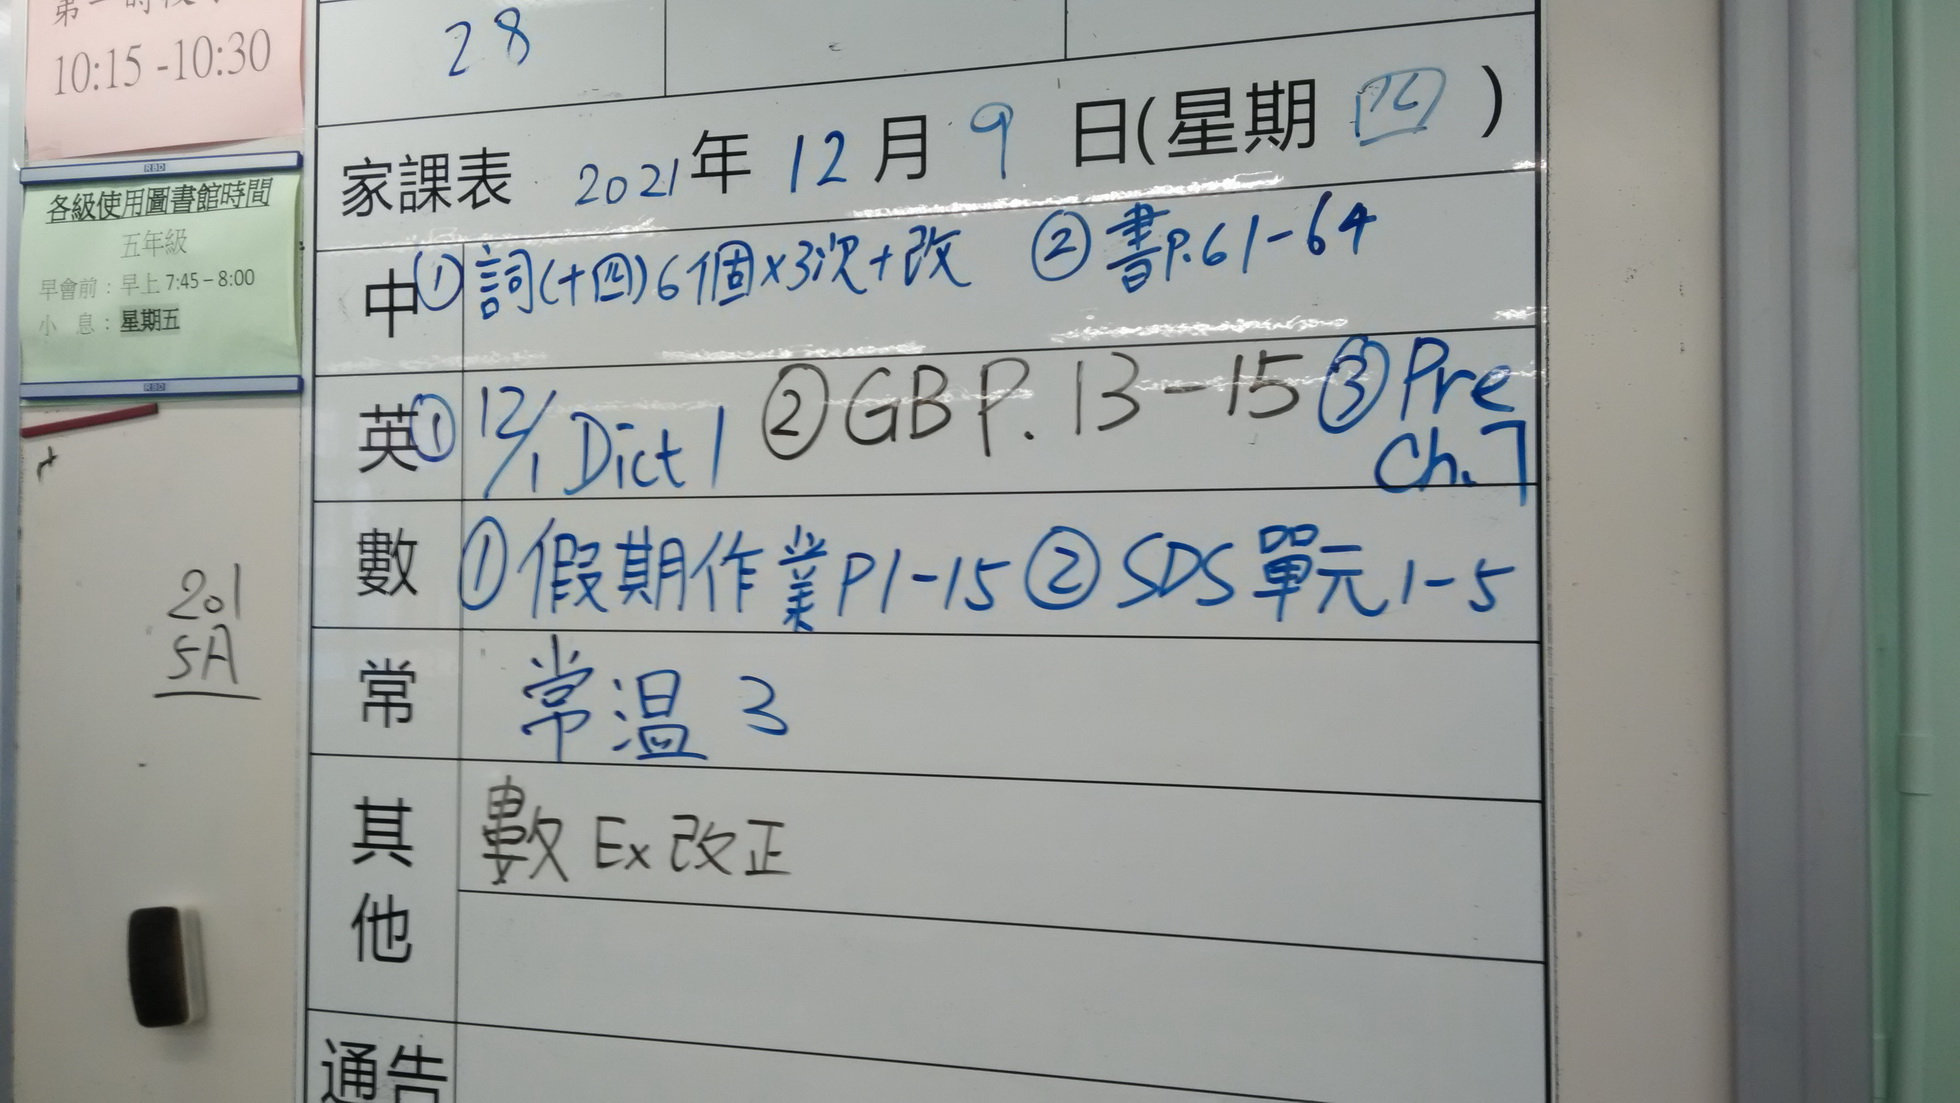 10:15 -10:30
各級使用圖書館時間
五年級
早會前：早上 7:45 – 8:00
小 息：星期五
RBD
RBD
201
5A
28
家課表 2021年 12月 9日(星期四)
中 ① 詞(十四)6個×3次+改 ② 書P.61-64
英 ① 12/1 Dict 1 ② GB P. 13-15 ③ Pre
Ch.7
數 ① 假期作業P1-15 ② SDS單元1-5
常 常温 3
其他 數 Ex 改正
通告